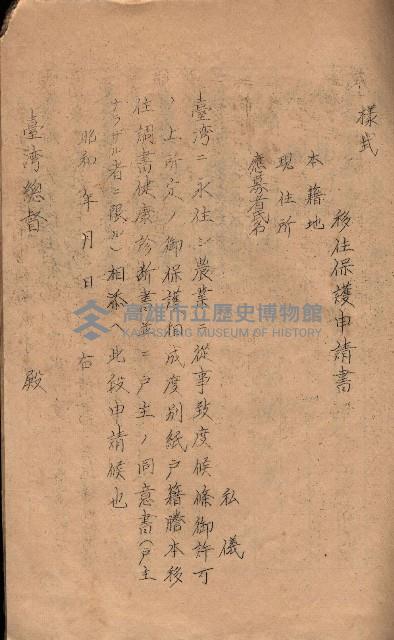 様式
移住保護申請書
本籍地
現住所
應募者氏名
私儀
臺湾ニ永住シ農業ニ從事致度候條御許可
ノ上所定ノ御保護相成度別紙戸籍謄本移
住調書健康診断書並ニ戸主ノ同意書(戸主
ナラザル者ニ限ル)相添ヘ此段申請候也
昭和 年 月 日
右
臺湾總督 殿
高雄市立歷史博物館
KAOHSIUNG MUSEUM OF HISTORY